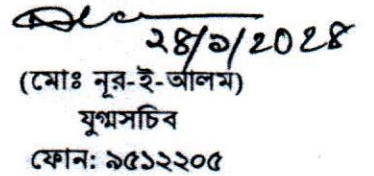 ২৪/১/২০২৪
(মোঃ নূর-ই-আলম)
যুগ্মসচিব
ফোন: ৯৫১২২০৫